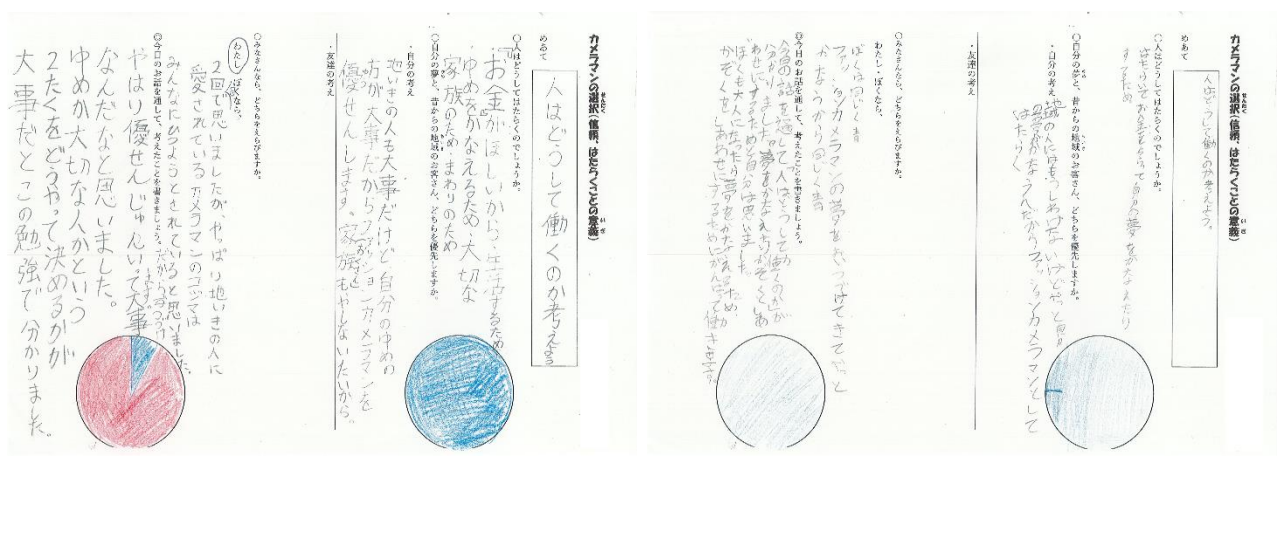 カメラマンの選択(信頼、はたらくことの意義)
めあて
人はどうして働くのか考えよう
○人はどうしてはたらくのでしょうか。
・『お金』がほしいから・生活するため
・ゆめをかなえるため・大切な
家族のため・まわりのため
○自分の夢と、昔からの地域のお客さん、どちらを優先しますか。
・自分の考え
地いきの人も大事だけど自分のゆめの
方が大事だからファッションカメラマンを
優せんします。家族もやしないたいから。
・友達の考え
○みなさんなら、どちらをえらびますか。
わたし・ぼくなら、
2回で思いましたが、やっぱり地いきの人に
愛されているカメラマンのコツマは
みんなにひつようとされていると思いました。
◎今日のお話を通して、考えたことを書きましょう。
やはり優せんじゅんいって大事
なんだなと思いました。
ゆめか大切な人かという
2たくをどうやって決めるかが
大事だとこの勉強で分かりました。
カメラマンの選択(信頼、はたらくことの意義)
めあて
人はどうして働くのか考えよう。
○人はどうしてはたらくのでしょうか。
はたらいてお金をもらって自分の夢をかなえたり
するため
○自分の夢と、昔からの地域のお客さん、どちらを優先しますか。
・自分の考え
地域の人にはもうしわけないけどやっと自分
の夢がかなうんだからファッションカメラマンとして
はたらく
・友達の考え
○みなさんなら、どちらをえらびますか。
わたし・ぼくなら、
ぼくは同じく青
ファッションカメラマンの夢をおいつづけてきてやっと
かなうから同じく青
◎今日のお話を通して、考えたことを書きましょう。
今日の話を通して人はどうして働くのかが
分かりました。夢をかなえたりかぞくをしあ
わせにするためだと自分は思いました。
ぼくも大人になったら夢をかなえるため、
かぞくをしあわせにするためにがんばって働きます。